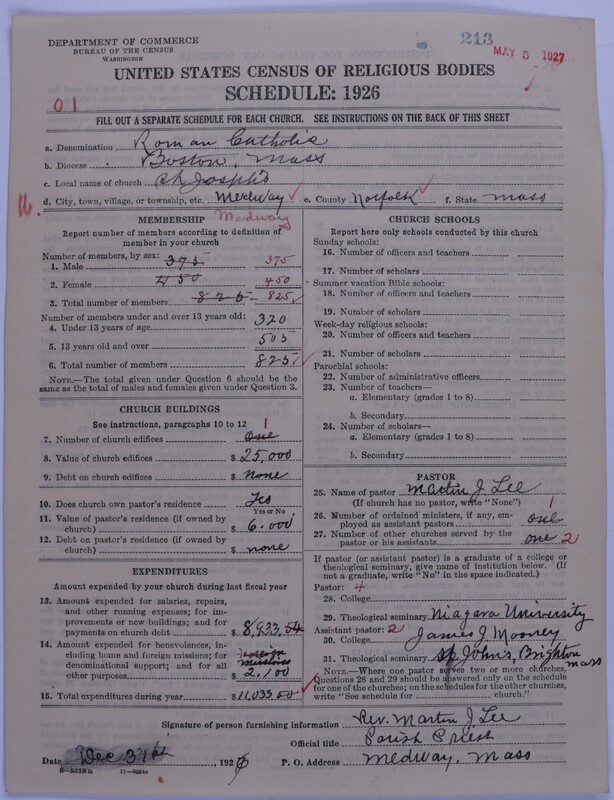 DEPARTMENT OF COMMERCE
BUREAU OF THE CENSUS
WASHINGTON
213
MAY 5 1927
UNITED STATES CENSUS OF RELIGIOUS BODIES
SCHEDULE: 1926
01
FILL OUT A SEPARATE SCHEDULE FOR EACH CHURCH. SEE INSTRUCTIONS ON THE BACK OF THIS SHEET
a. Denomination Roman Catholic
b. Diocese Boston, Mass
c. Local name of church St Joseph's
d. City, town, village, or township, etc. Medway e. County Norfolk f. State Mass
16.
MEMBERSHIP Medway
Report number of members according to definition of member in your church
Number of members, by sex:
1. Male 375 375
2. Female 450 450
3. Total number of members 825 825
Number of members under and over 13 years old:
4. Under 13 years of age 320
5. 13 years old and over 505
6. Total number of members 825
NOTE.—The total given under Question 6 should be
the same as the total of males and females given under Question 3.
CHURCH BUILDINGS
See instructions, paragraphs 10 to 12
7. Number of church edifices one 1
8. Value of church edifices $ 25,000
9. Debt on church edifices $ none
10. Does church own pastor's residence Yes
Yes or No
11. Value of pastor's residence (if owned by
church) $ 6.000
12. Debt on pastor's residence (if owned by
church) $ none
EXPENDITURES
Amount expended by your church during last fiscal year
13. Amount expended for salaries, repairs,
and other running expenses; for im-
provements or new buildings; and for
payments on church debt $ 8,933.54
14. Amount expended for benevolences, in-
cluding home and foreign missions; for
denominational support; and for all
other purposes $ foreign missions 2,100
15. Total expenditures during year $ 11,033.50
CHURCH SCHOOLS
Report here only schools conducted by this church
Sunday schools:
16. Number of officers and teachers
17. Number of scholars
Summer vacation Bible schools:
18. Number of officers and teachers
19. Number of scholars
Week-day religious schools:
20. Number of officers and teachers
21. Number of scholars
Parochial schools:
22. Number of administrative officers
23. Number of teachers—
a. Elementary (grades 1 to 8)
b. Secondary
24. Number of scholars—
a. Elementary (grades 1 to 8)
b. Secondary
PASTOR
25. Name of pastor Martin J. Lee
(If church has no pastor, write "None")
26. Number of ordained ministers, if any, em-
ployed as assistant pastors one 1
27. Number of other churches served by the
pastor or his assistants one 2
If pastor (or assistant pastor) is a graduate of a college or
theological seminary, give name of institution below. (If
not a graduate, write "No" in the space indicated.)
Pastor: 4
28. College
29. Theological seminary Niagara University
Assistant pastor: 2
30. College James J Mooney
31. Theological seminary St John's, Brighton Mass
NOTE.—Where one pastor serves two or more churches,
Questions 28 and 29 should be answered only on the schedule
for one of the churches; on the schedules for the other churches,
write "See schedule for church."
Signature of person furnishing information Rev. Martin J. Lee
Official title Parish Priest
Date Dec 31st, 1926 P. O. Address Medway, Mass